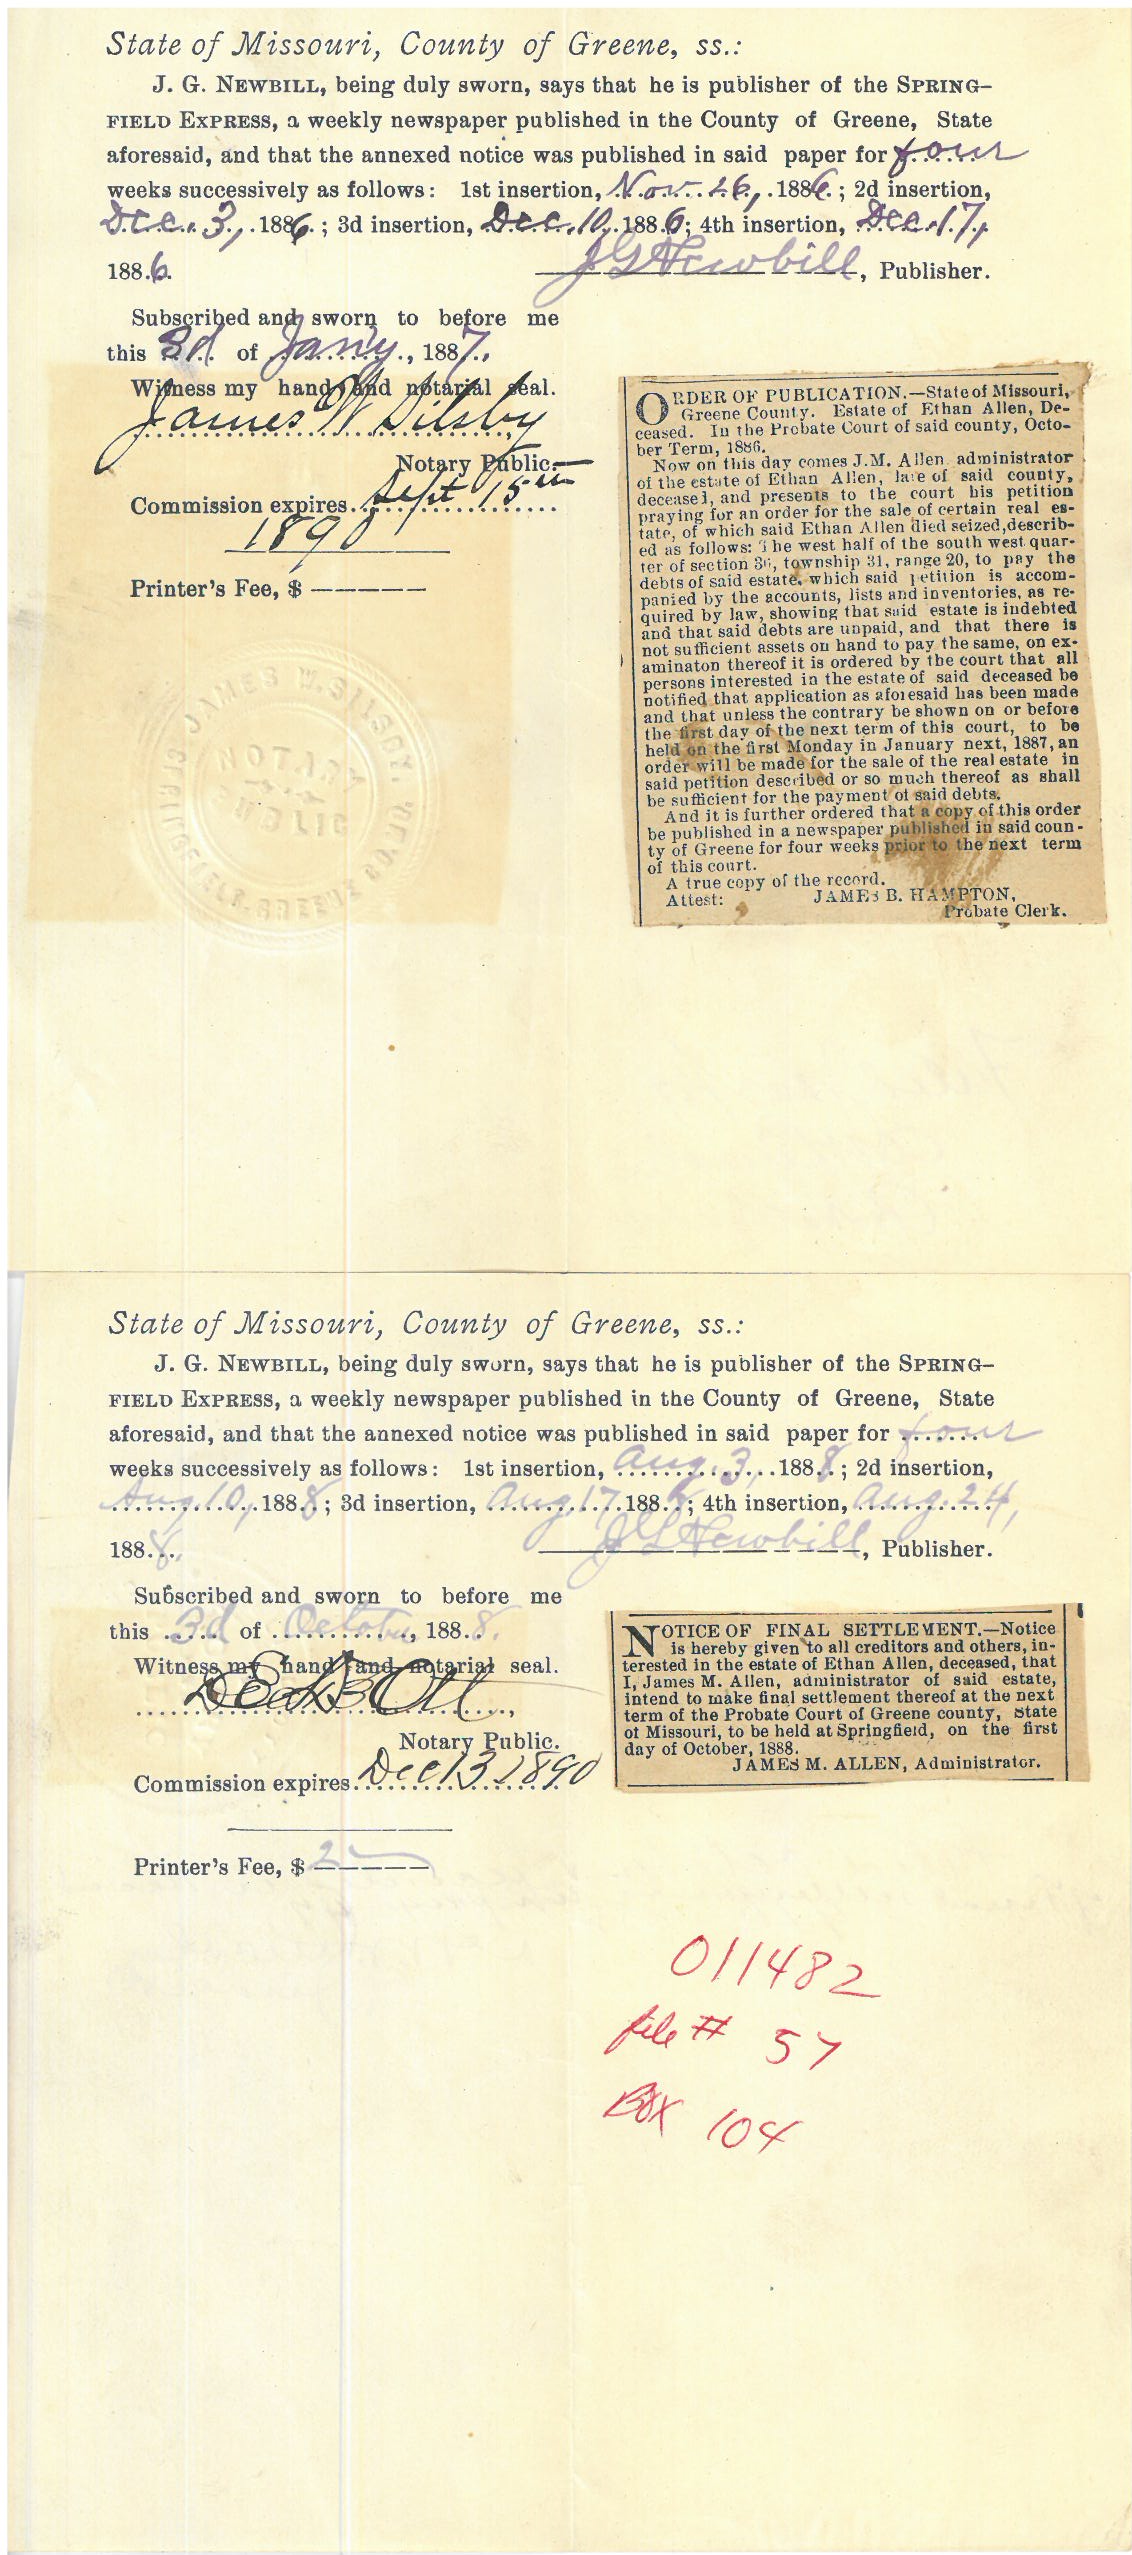 State of Missouri, County of Greene, ss.:
J. G. NEWBILL, being duly sworn, says that he is publisher of the SPRING-
FIELD EXPRESS, a weekly newspaper published in the County of Greene, State
aforesaid, and that the annexed notice was published in said paper for four
weeks successively as follows: 1st insertion, Nov. 26, 1886.; 2d insertion,
Dec. 3, 1886.; 3d insertion, Dec. 10, 1886; 4th insertion, Dec. 17,
1886. J G Newbill, Publisher.
Subscribed and sworn to before me
this 3d of Jan'y, 1887.
Witness my hand and notarial seal.
James W Silsby
Notary Public.
Commission expires Sept 15th
1890
Printer's Fee, $
JAMES W. SILSBY
NOTARY
PUBLIC
ORDER OF PUBLICATION.—State of Missouri,
Greene County. Estate of Ethan Allen, De-
ceased. In the Probate Court of said county, Octo-
ber Term, 1886.
Now on this day comes J.M. Allen administrator
of the estate of Ethan Allen, late of said county,
deceased, and presents to the court his petition
praying for an order for the sale of certain real es-
tate, of which said Ethan Allen died seized,describ-
ed as follows: The west half of the south west quar-
ter of section 36, township 31, range 20, to pay the
debts of said estate, which said petition is accom-
panied by the accounts, lists and inventories, as re-
quired by law, showing that said estate is indebted
and that said debts are unpaid, and that there is
not sufficient assets on hand to pay the same, on ex-
aminaton thereof it is ordered by the court that all
persons interested in the estate of said deceased be
notified that application as aforesaid has been made
and that unless the contrary be shown on or before
the first day of the next term of this court, to be
held on the first Monday in January next, 1887, an
order will be made for the sale of the real estate in
said petition described or so much thereof as shall
be sufficient for the payment of said debts.
And it is further ordered that a copy of this order
be published in a newspaper published in said coun-
ty of Greene for four weeks prior to the next term
of this court.
A true copy of the record.
Attest: JAMES B. HAMPTON,
Probate Clerk.
State of Missouri, County of Greene, ss.:
J. G. NEWBILL, being duly sworn, says that he is publisher of the SPRING-
FIELD EXPRESS, a weekly newspaper published in the County of Greene, State
aforesaid, and that the annexed notice was published in said paper for four
weeks successively as follows: 1st insertion, Aug. 3, 1888.; 2d insertion,
Aug. 10, 1888; 3d insertion, Aug 17 188; 4th insertion, Aug. 24,
1888. J G Newbill, Publisher.
Subscribed and sworn to before me
this 3d of October, 1888.
Witness my hand and notarial seal.
Ott
Notary Public.
Commission expires Dec 13 1890
Printer's Fee, $ 2
NOTICE OF FINAL SETTLEMENT.—Notice
is hereby given to all creditors and others, in-
terested in the estate of Ethan Allen, deceased, that
I, James M. Allen, administrator of said estate,
intend to make final settlement thereof at the next
term of the Probate Court of Greene county, State
of Missouri, to be held at Springfield, on the first
day of October, 1888.
JAMES M. ALLEN, Administrator.
011482
file # 57
Box 104